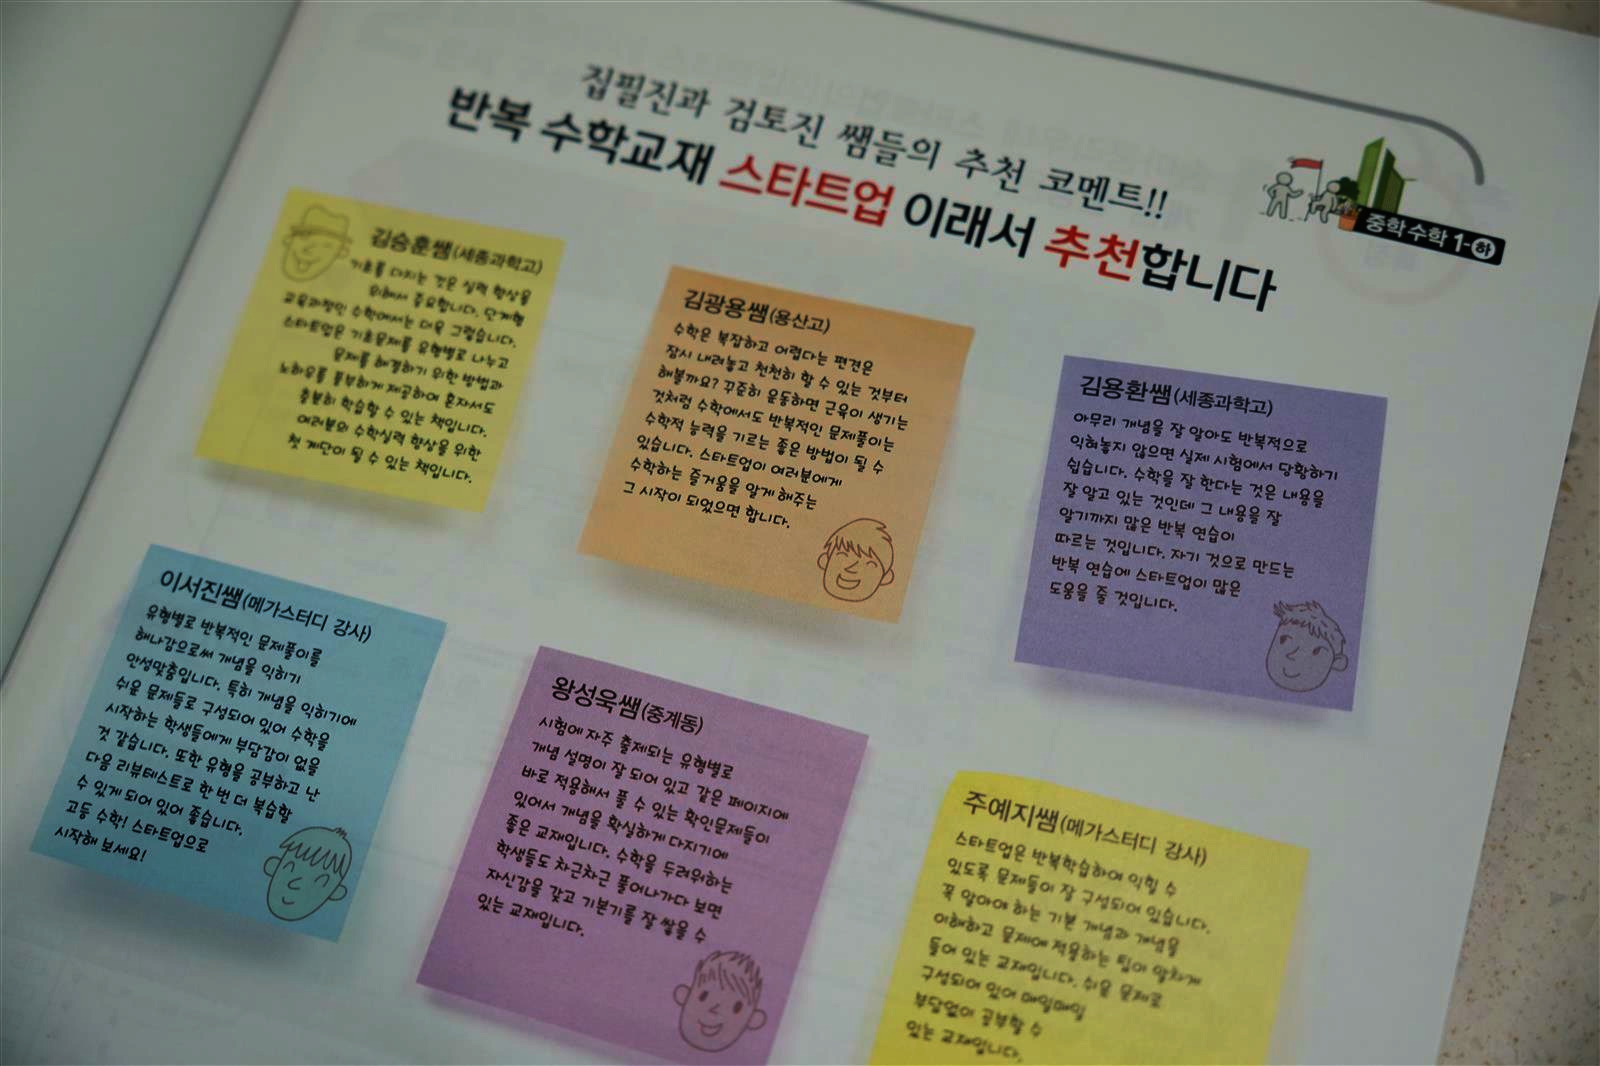 집필진과 검토진 쌤들의 추천 코멘트!!
반복 수학교재 스타트업 이래서 추천합니다
중학 수학 1-하
김승훈쌤(세종과학고)
기초를 다지는 것은 실력 향상을
위해서 중요합니다. 단계형
교육과정인 수학에서는 더욱 그렇습니다.
스타트업은 기초문제를 유형별로 나누고
문제를 해결하기 위한 방법과
노하우를 풍부하게 제공하여 혼자서도
충분히 학습할 수 있는 책입니다.
여러분의 수학실력 향상을 위한
첫 계단이 될 수 있는 책입니다.
김광용쌤(용산고)
수학은 복잡하고 어렵다는 편견은
잠시 내려놓고 천천히 할 수 있는 것부터
해볼까요? 꾸준히 운동하면 근육이 생기는
것처럼 수학에서도 반복적인 문제풀이는
수학적 능력을 기르는 좋은 방법이 될 수
있습니다. 스타트업이 여러분에게
수학하는 즐거움을 알게 해주는
그 시작이 되었으면 합니다.
김용환쌤(세종과학고)
아무리 개념을 잘 알아도 반복적으로
익혀놓지 않으면 실제 시험에서 당황하기
쉽습니다. 수학을 잘 한다는 것은 내용을
잘 알고 있는 것인데 그 내용을 잘
알기까지 많은 반복 연습이
따르는 것입니다. 자기 것으로 만드는
반복 연습에 스타트업이 많은
도움을 줄 것입니다.
이서진쌤(메가스터디 강사)
유형별로 반복적인 문제풀이를
해나감으로써 개념을 익히기
안성맞춤입니다. 특히 개념을 익히기에
쉬운 문제들로 구성되어 있어 수학을
시작하는 학생들에게 부담감이 없을
것 같습니다. 또한 유형을 공부하고 난
다음 리뷰테스트로 한 번 더 복습할
수 있게 되어 있어 좋습니다.
고등 수학! 스타트업으로
시작해 보세요!
왕성욱쌤(중계동)
시험에 자주 출제되는 유형별로
개념 설명이 잘 되어 있고 같은 페이지에
바로 적용해서 풀 수 있는 확인문제들이
있어서 개념을 확실하게 다지기에
좋은 교재입니다. 수학을 두려워하는
학생들도 차근차근 풀어나가다 보면
자신감을 갖고 기본기를 잘 쌓을 수
있는 교재입니다.
주예지쌤(메가스터디 강사)
스타트업은 반복학습하여 익힐 수
있도록 문제들이 잘 구성되어 있습니다.
꼭 알아야 하는 기본 개념과 개념을
이해하고 문제에 적용하는 팁이 알차게
들어 있는 교재입니다. 쉬운 문제로
구성되어 있어 매일매일
부담없이 공부할 수
있는 교재입니다.